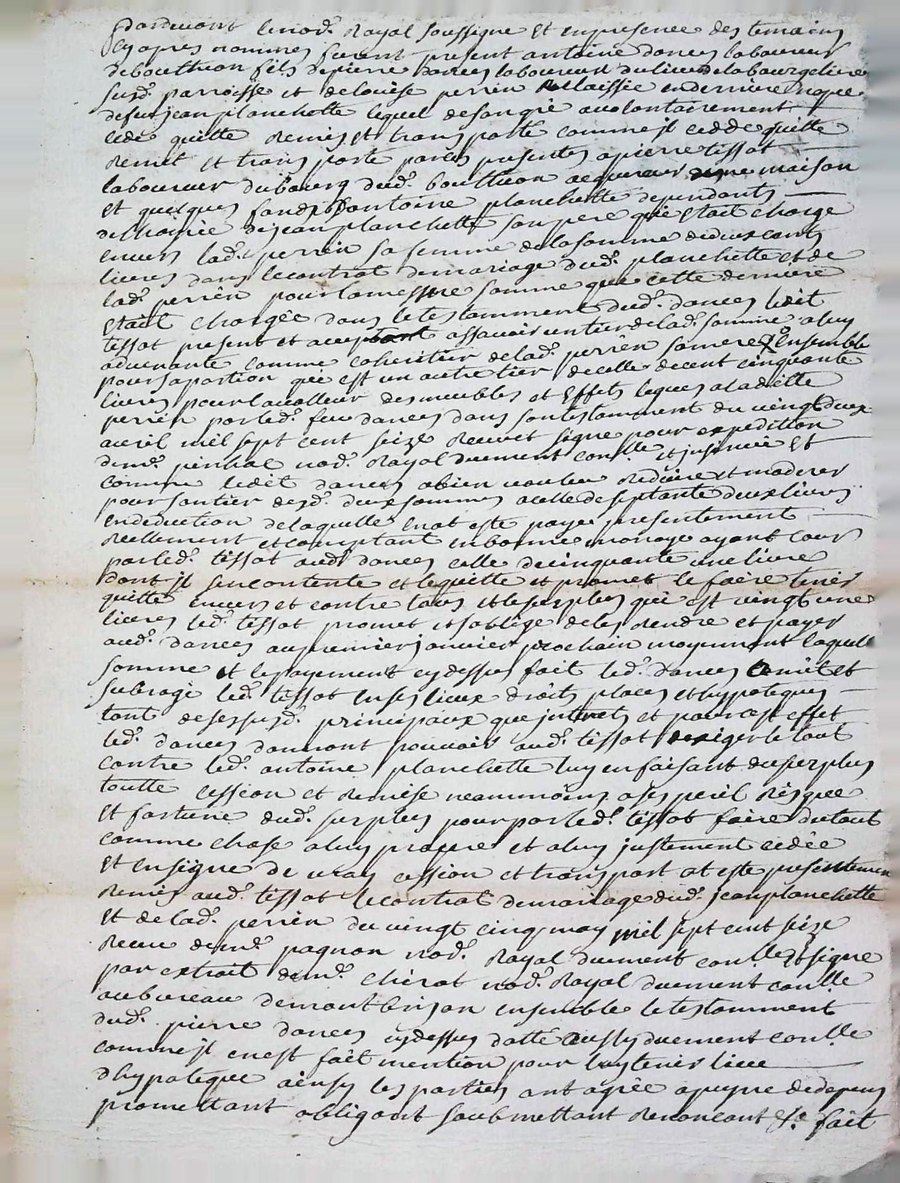 Pardevant le nore. Royal soussigné et en presence des temoins
cy apres nommes furent present antoine dances laboureur
de boutheon fils de pierre dances laboureur du lieu de la bourgeliere
susd. parroisse et de louise perrin relaissée en derniere nopce
de feu jean planchette lequel de son gré a volontairement
cedé quitté remis et transporté comme jl cedde quitte
remet et transporte par ces presentes a pierre tissot
laboureur du bourg dud. boutheon acquereur dune maison
et quelques fonds dantoine planchette dependants
de lhoirie de jean planchette son pere que etait chargé
envers lad. perrin sa femme de la somme de deux cents
livres dans le contrat de mariage dud. planchette et de
lad. perrin pour la mesme somme que cette derniere
etait chargée dans le testamment dud. dances ledit
tissot present et acceptant assavoir un tier de lad. somme a luy
advenante comme coheritier de lad. perrin sa mere & ensemble
pour sa portion que est un autre tier de celle de cent cinquante
livres pour la valleur des meubles et effets legues a ladite
perrin par led. feu dances dans son testamment du vingt deux
avril mil sept cent seize receu et signé pour expedition
de me. pinhal nore. Royal duement conllé et jnsinué et
comme ledit dances a bien voulu reduire et moderer
pour son tier desd. deux sommes a celle de septante deux livres
en deduction de laquelle en at este payé presentement
reellement et comptant en bonne monoye ayant cour
par led. tissot aud. dances celle de cinquante une livre
dont jl sen contente et le quitte et promet le faire tenir
quitte envers et contre tous et le surplus qui est vingt une
livres led. tissot promet et soblige de les rendre et payer
aud. dances au premier janvier prochain moyennant laquelle
somme et le payement cy dessus fait led. dances a mis et
subrogé led. tissot en ses lieux droits places et hypoteques
tant desessusd. principaux que jnterets et pour cest effet
led. dances donnont pouvoir aud. tissot dexiger le tout
contre led. antoine planchette luy en faisant du surplus
toutte cession et remise neammoins a ses peril risque
et fortune dud. surplus pour par led. tissot faire du tout
comme chose a luy propre et a luy justement cedée
et en signe de vray cession et transport at este presentement
remis aud. tissot le contrat de mariage dud. jean planchette
et de lad. perrin du vingt cinq may mil sept cent seize
receu de me. pagnon nore. Royal duement conllé et signé
par extrait de me. cherat nore. Royal duement conllé
au bureau de montbrison ensemble le testamment
dud. pierre dances cy dessus datté aussy duement conllé
comme jl en est fait mention pour luy tenir lieu
dhypoteque ainsy les parties ont agréé a peyne de depens
promettant obligant soubmettant renoncant &c. fait